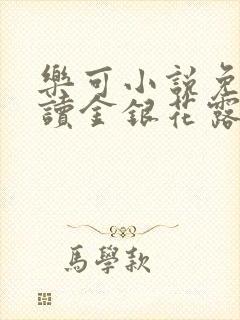 樂可小説免
讀金銀花露
馬學款